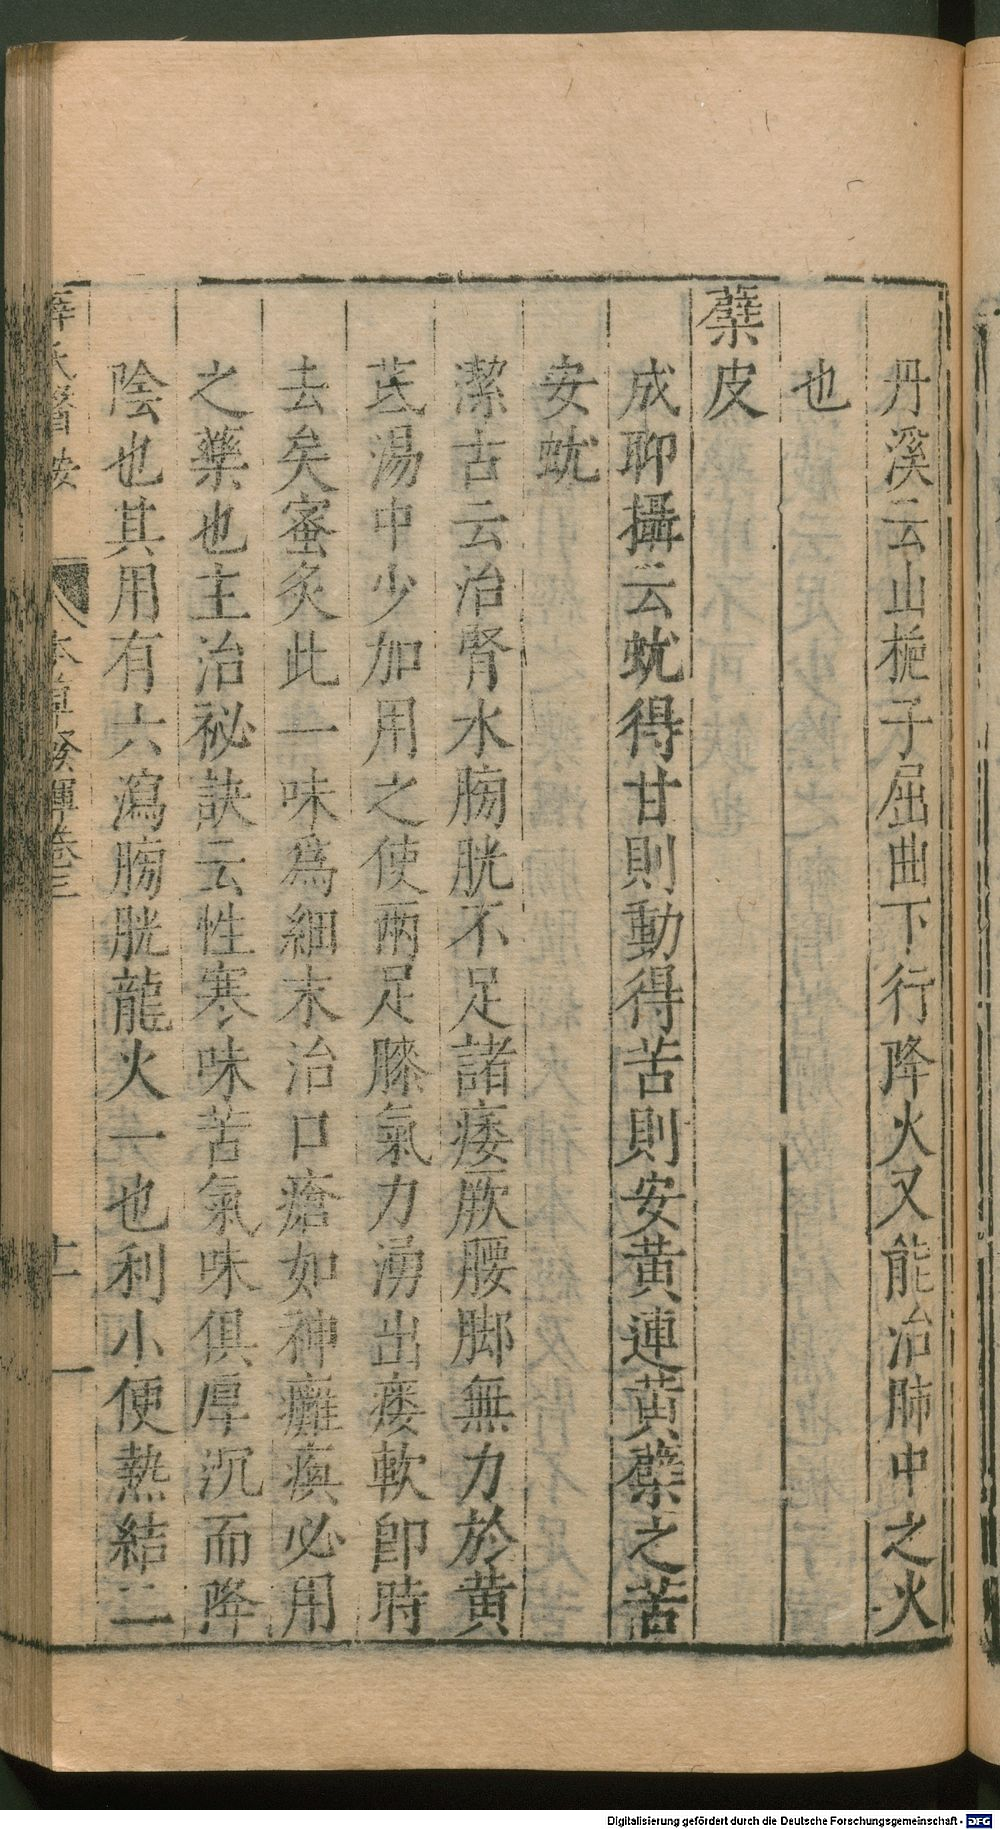 丹溪云山梔子屈曲下行降火又能治肺中之火
也
蘗皮
成聊攝云蚘得甘則動得苦則安黃連黃蘗之苦
安蚘
潔古云治腎水膀胱不足諸痿厥腰脚無力於黃
芪湯中少加用之使兩足膝氣力湧出痿軟卽時
去矣蜜炙此一味爲細末治口瘡如神癱瘓必用
之藥也主治祕訣云性寒味苦氣味俱厚沉而降
陰也其用有六瀉膀胱龍火一也利小便熱結二
薛氏醫按 本草發揮卷三 十一
Digitalisierung gefördert durch die Deutsche Forschungsgemeinschaft - DFG